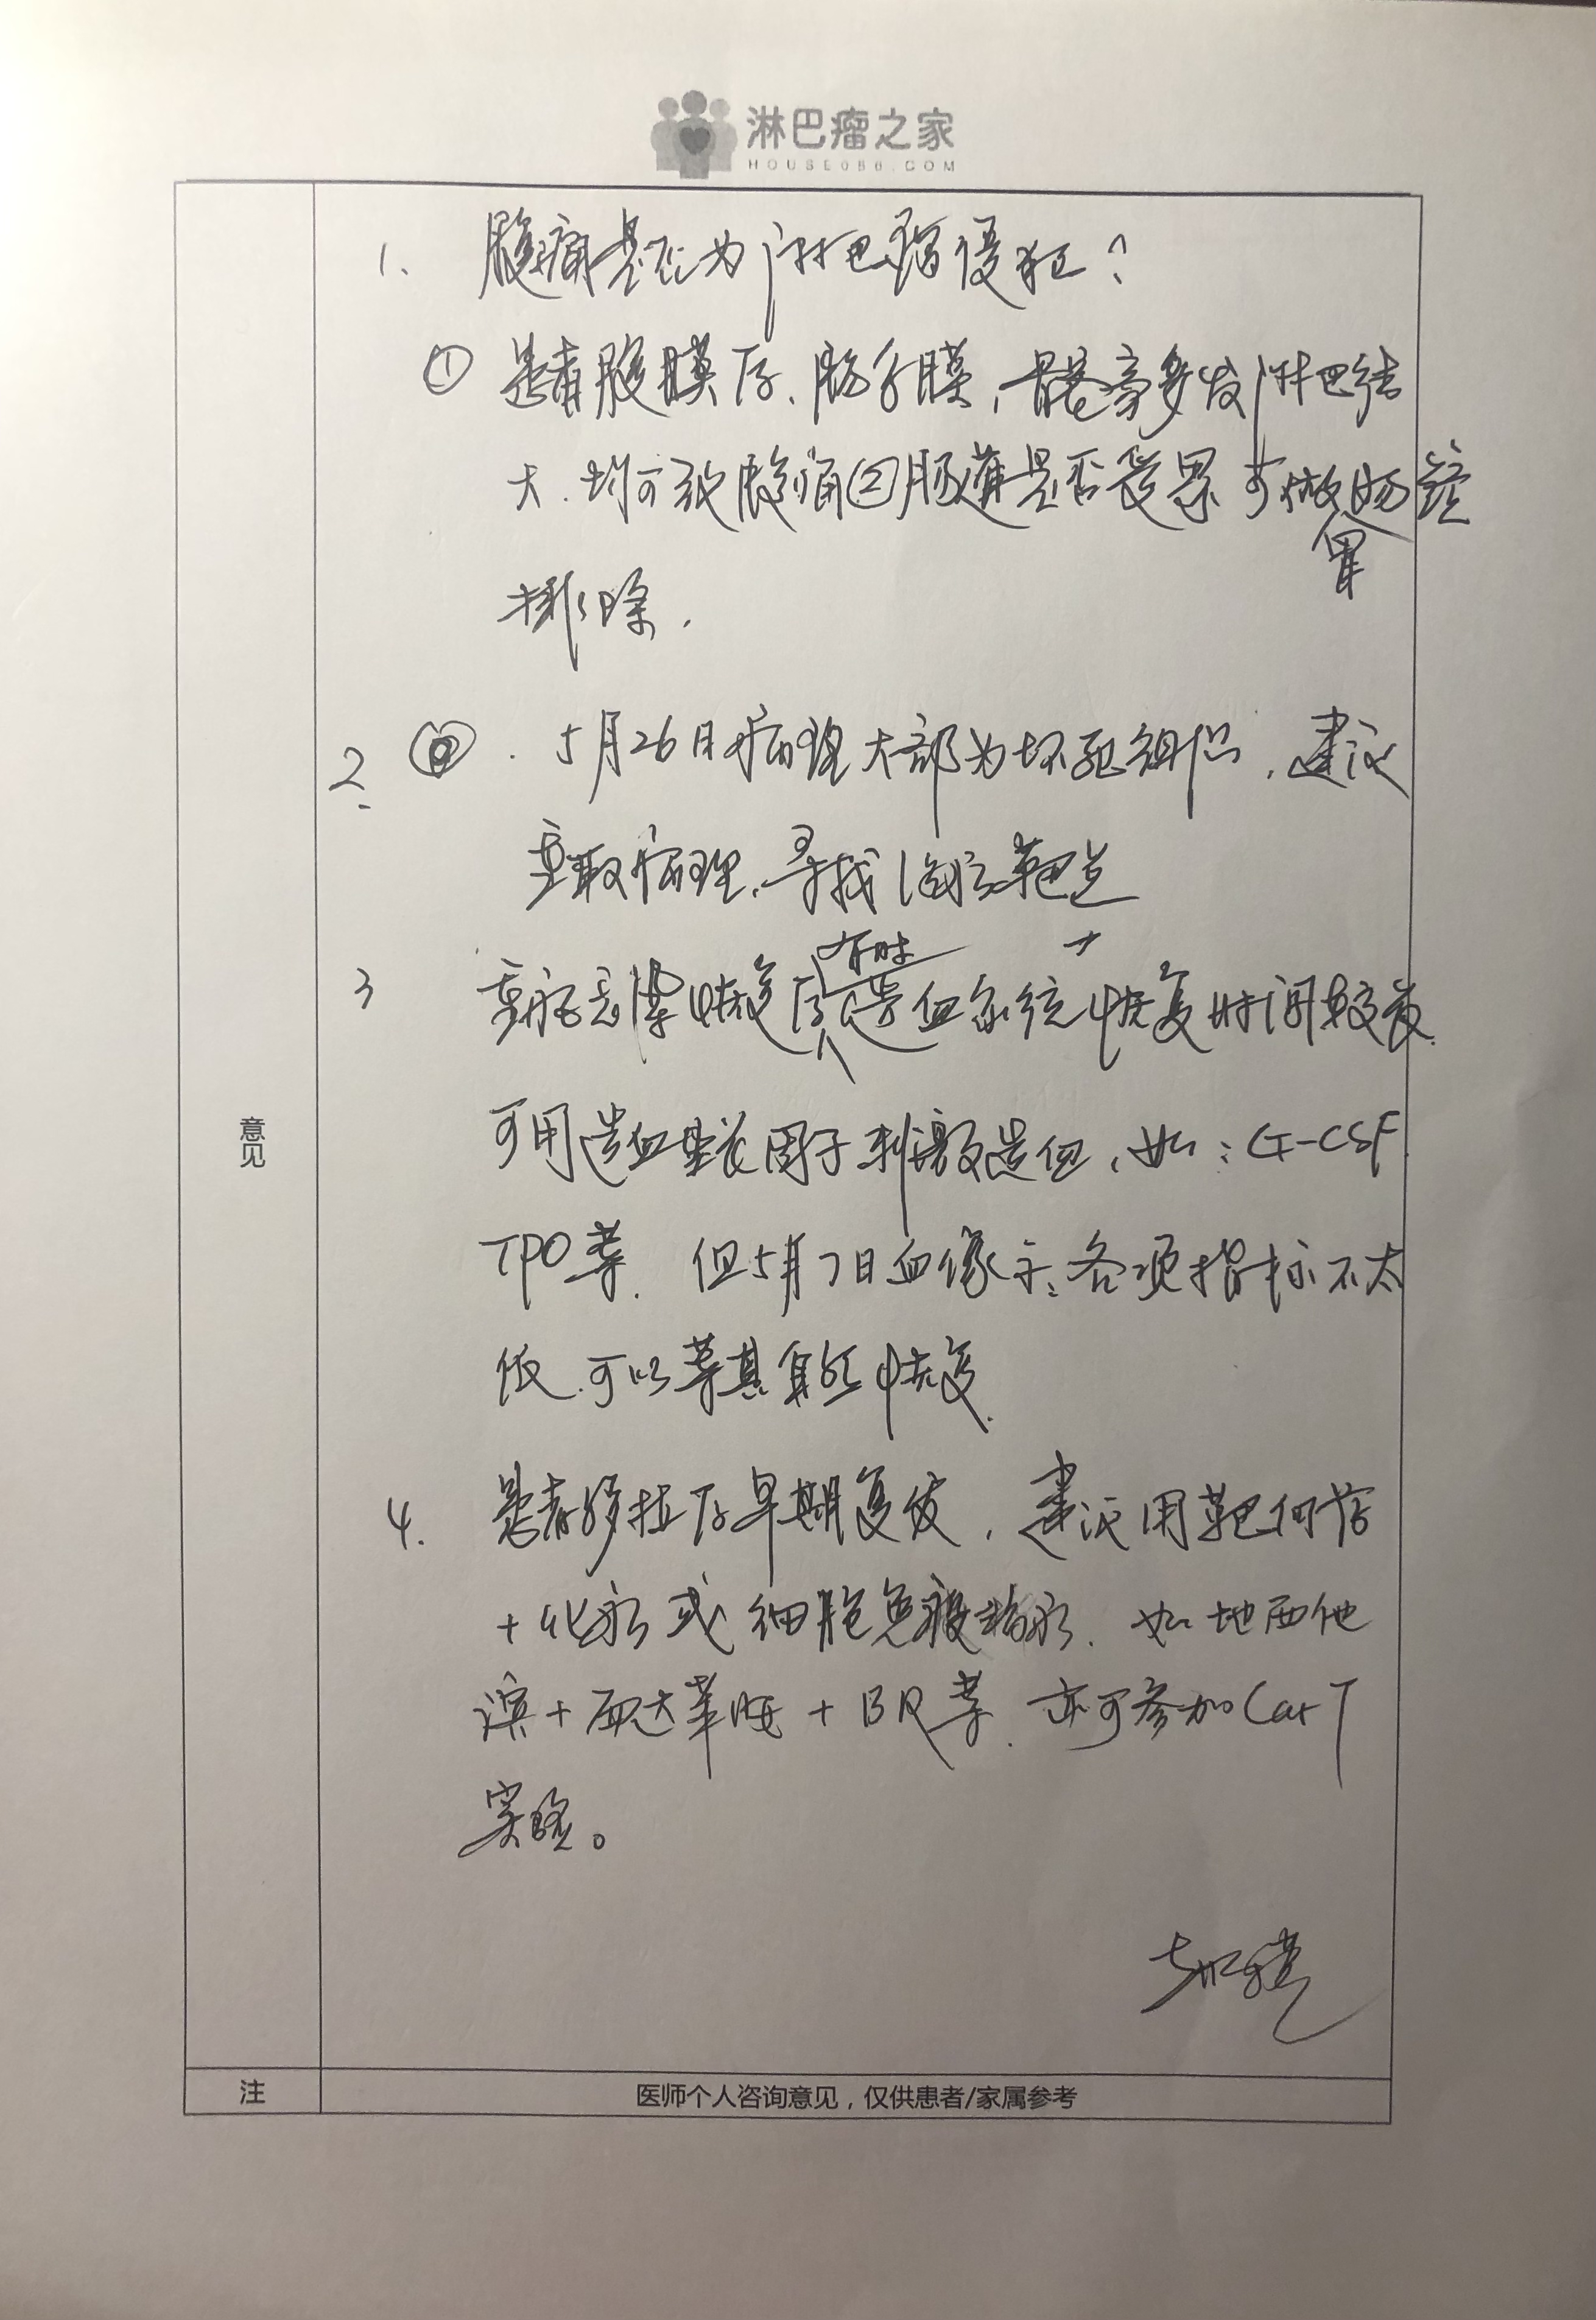 淋巴瘤之家
HOUSE086.COM
1. 腹痛是否为淋巴瘤侵犯?
① 患者腹膜后、肠系膜,髂旁多发淋巴结
大.均可致腹痛②肠道是否受累 可做肠镜
胃
排除.
2. . 5月26日病理大部为坏死组织,建议
重取病理,寻找治疗靶点
有时
3 重症感染恢复后造血系统恢复时间较长.
可用造血生长因子刺激造血,如:G-CSF
TPO等. 但5月7日血像示:各项指标不太
低.可以等其自然恢复.
4. 患者移植后早期复发,建议用靶向药
+化疗或细胞免疫治疗. 如地西他
滨+西达苯胺+BR等.亦可参加CarT
实验。
意见
注 医师个人咨询意见,仅供患者/家属参考